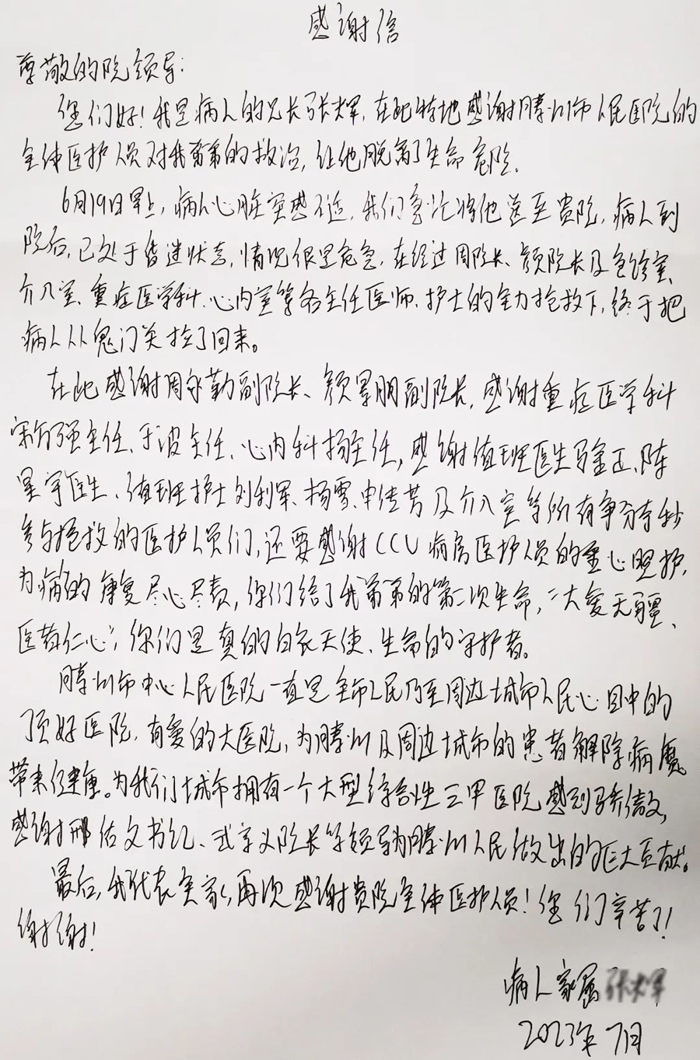 感谢信
尊敬的院领导:
您们好!我是病人的兄长张辉,在此特地感谢滕州市人民医院的
全体医护人员对我弟弟的救治,让他脱离了生命危险.
6月19日早上,病人心脏突感不适,我们急忙将他送至贵院,病人到
院后,已处于昏迷状态,情况很是危急,在经过周院长、颜院长及急诊室、
介入室、重症医学科、心内室等各主任医师、护士的全力抢救下,终于把
病人从鬼门关拉了回来。
在此感谢周守勤副院长、颜景朋副院长,感谢重症医学科
强主任、于波主任、心内科杨主任,感谢值班医生正、陈
星宇医生、值班护士刘利军、杨雪、申佳芳及介入室等所有争分夺秒
参与抢救的医护人员们,还要感谢CCU病房医护人员的重心照护,
为病的康复尽心尽责,你们给了我弟弟的第二次生命,“大爱无疆、
医者仁心”,你们是真的白衣天使、生命的守护者。
滕州市中心人民医院一直是全市人民乃至周边城市人民心目中的
顶好医院,有爱的大医院,为滕州及周边城市的患者解除病魔
带来健康。为我们城市拥有一个大型综合性三甲医院感到骄傲,
感谢邢佑文书记、义院长等领导为滕州人民做出的巨大贡献。
最后,我代表全家,再次感谢贵院全体医护人员!您们辛苦了!
谢谢!
病人家属
2023年7月